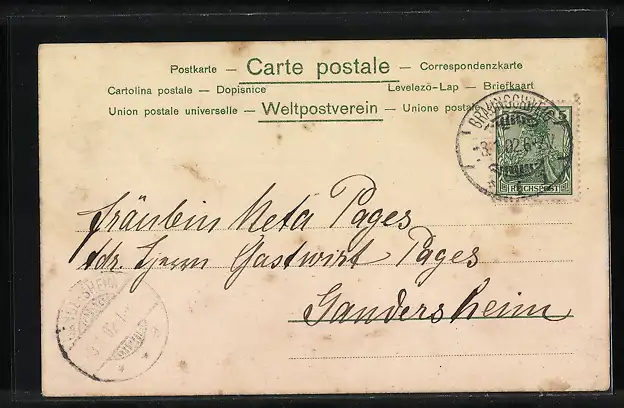 Postkarte – Carte postale – Correspondenzkarte
Cartolina postale – Dopisnice Levelező-Lap – Briefkaart
Union postale universelle – Weltpostverein – Unione postale
BRAUNSCHWEIG
5
02.6
REICHSPOST
Fräulein Neta Pages
Adr. Herrn Gastwirt Pages
Gandersheim